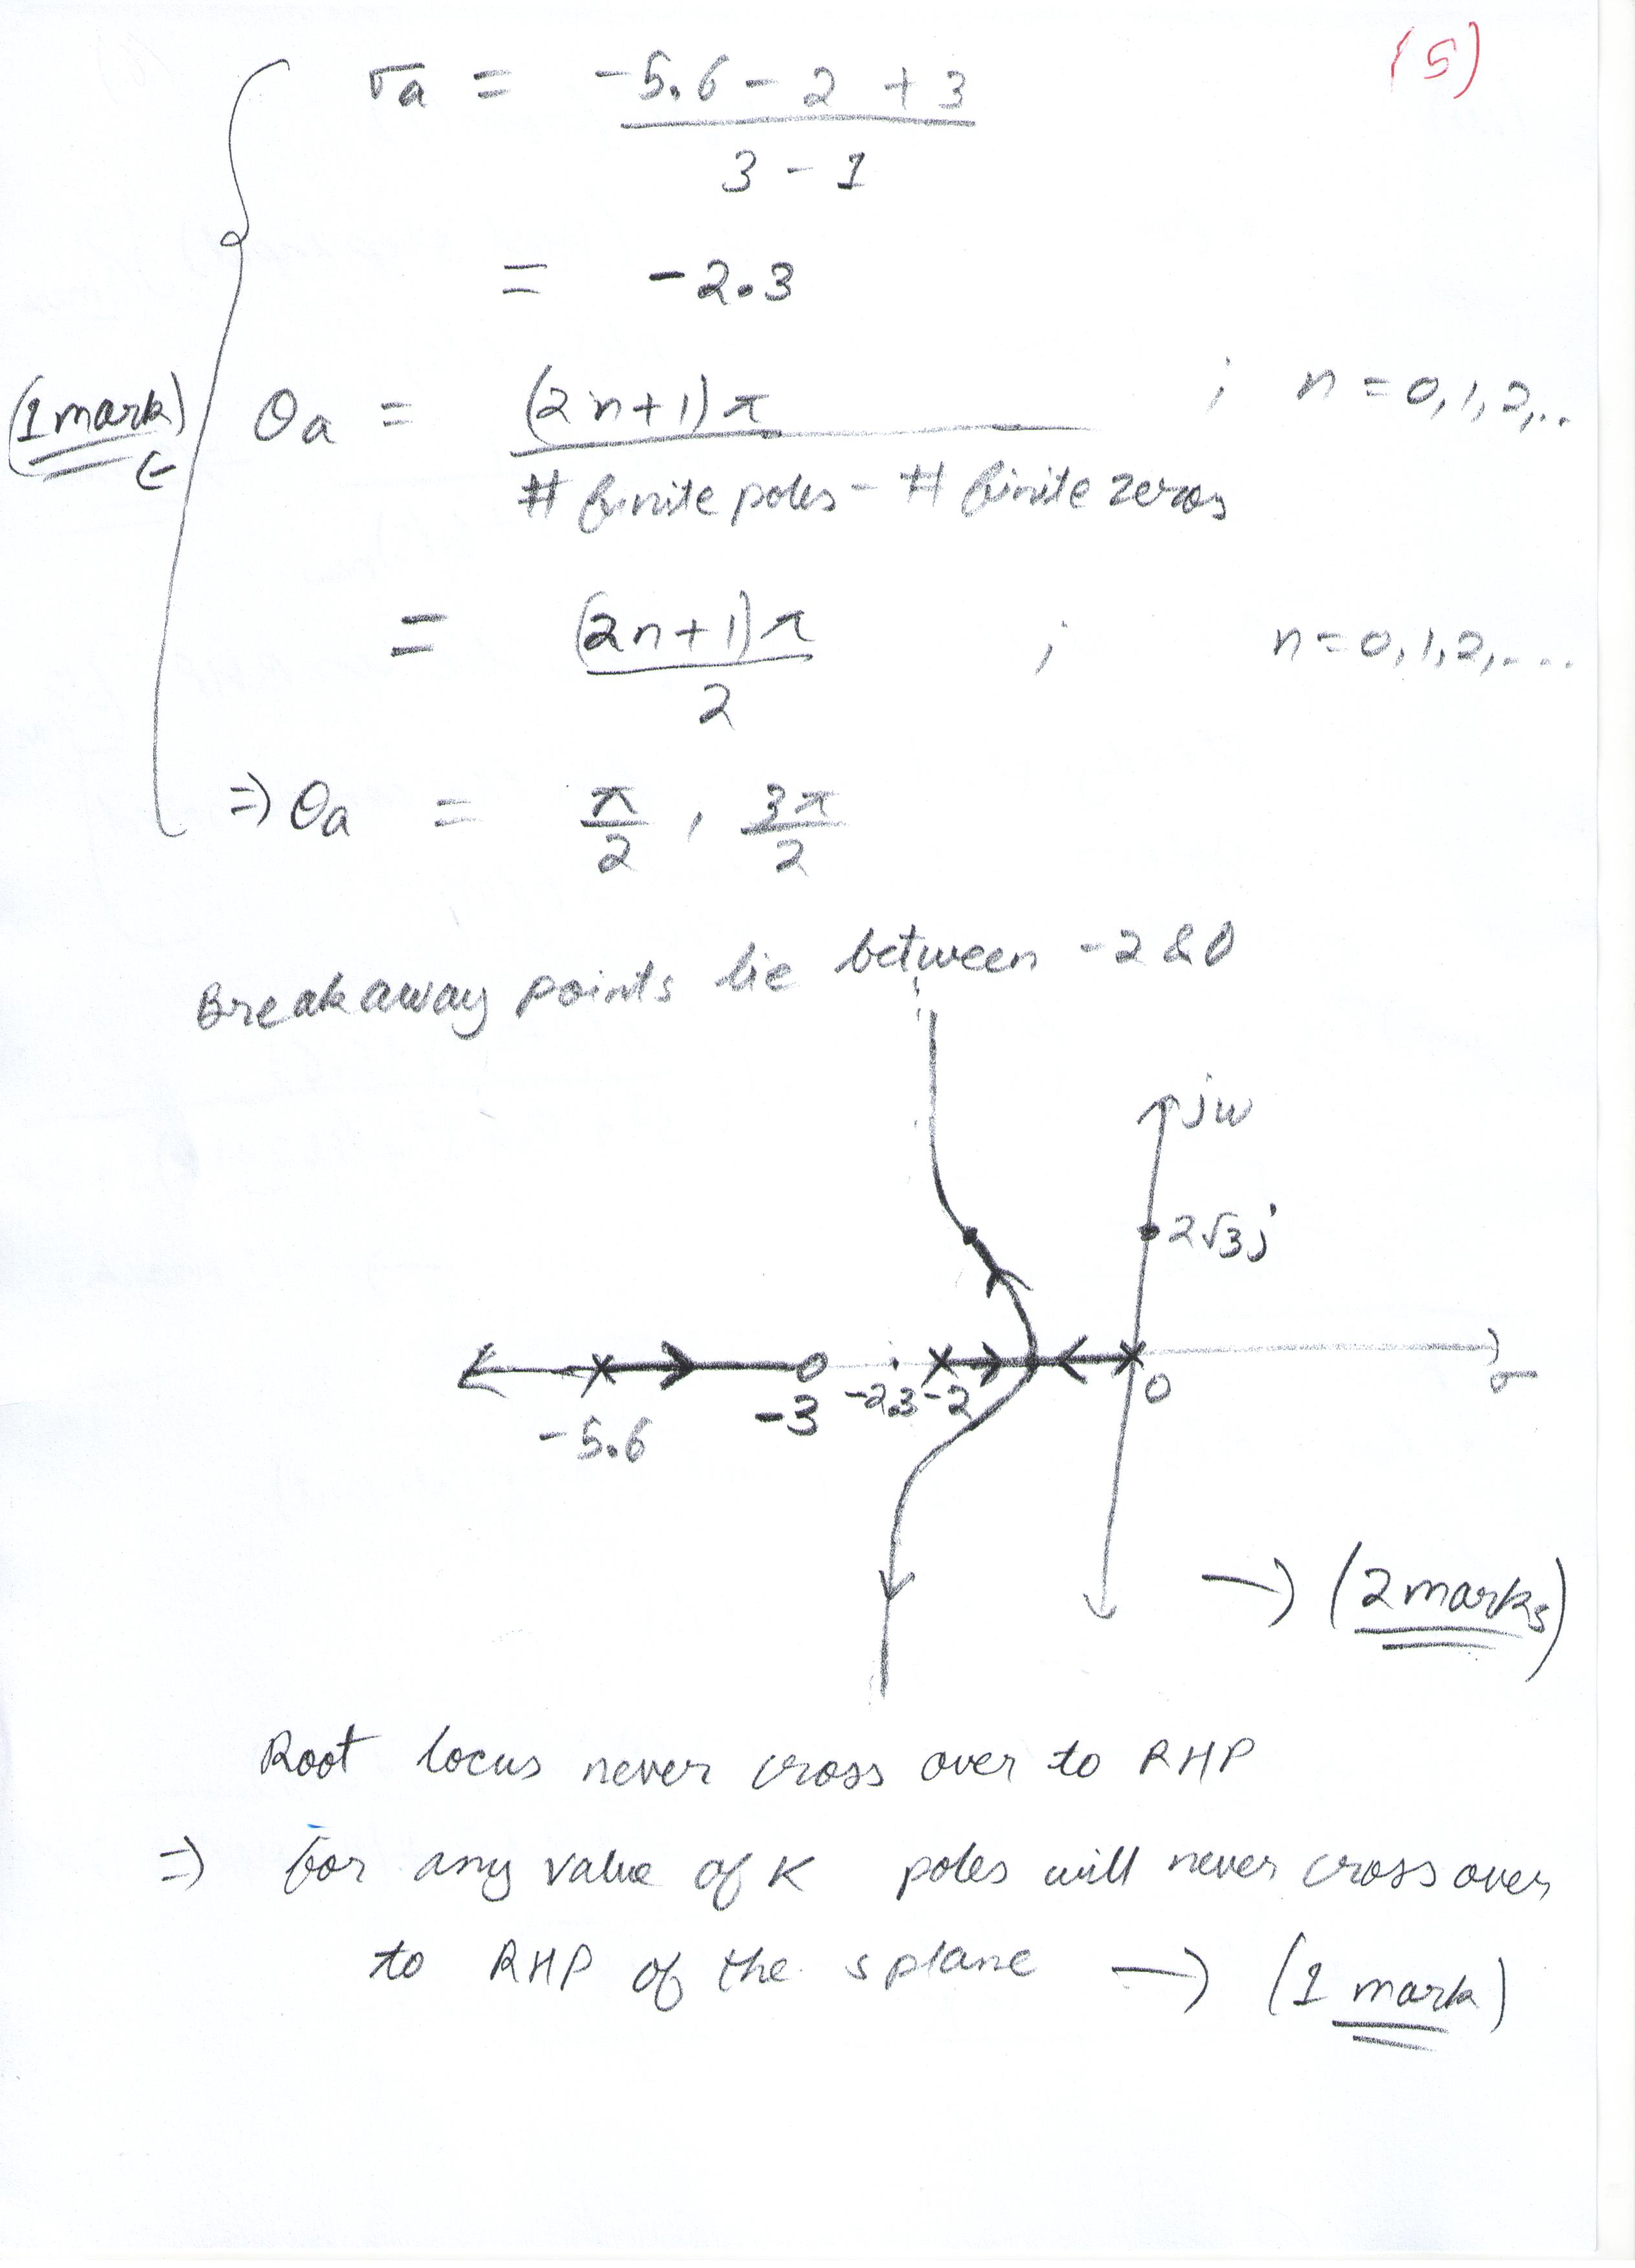 (5)
σa = -5.6 - 2 + 3
3 - 1
= -2.3
(1 mark)
θa = (2n+1)π ; n = 0, 1, 2, ..
# finite poles - # finite zeros
= (2n+1)π ; n = 0, 1, 2, ....
2
⇒ θa = π/2 , 3π/2
Breakaway points lie between -2 & 0
jω
2√3j
-5.6 -3 -2.3 -2 0 σ
→ (2 marks)
Root locus never cross over to RHP
⇒ for any value of K poles will never cross over
to RHP of the s plane → (1 mark)